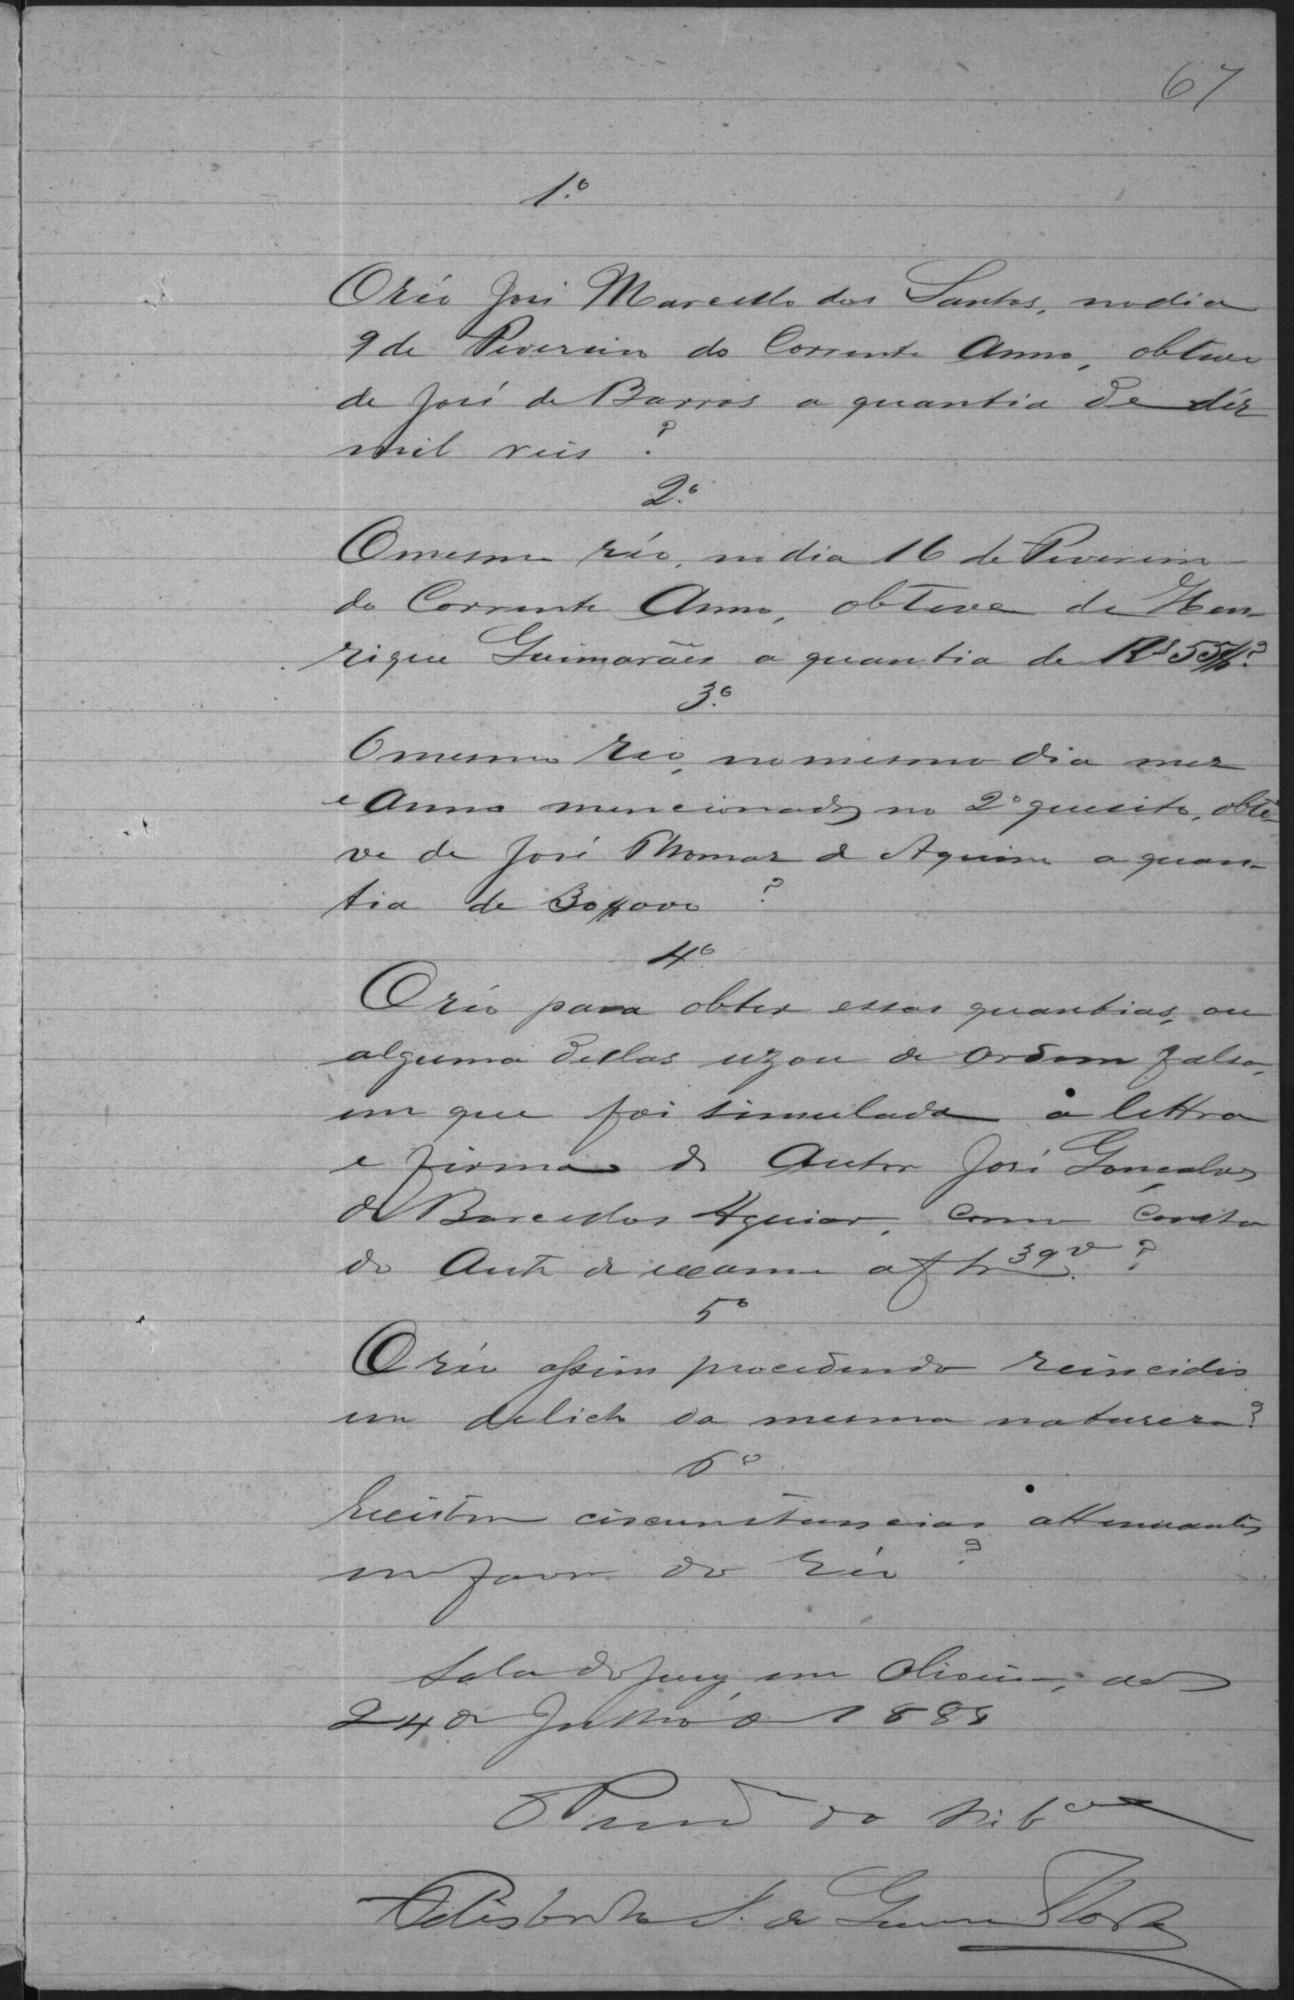 67
1.º
O réo José Marcello dos Santos, no dia
9 de Fevereiro do Corrente Anno, obteve
de José de Barros a quantia de déz
mil reis ?
2.º
O mesmo réo, no dia 16 de Fevereiro
do Corrente Anno, obteve de Hen-
rique Guimarães a quantia de Rs 55$?
3.º
O mesmo Reo, no mesmo dia mez
e Anno mencionados no 2º quesito, obte-
ve de José Thomaz d Aquino a quan-
tia de 30$000 ?
4º
O réo para obter essas quantias, ou
alguma dellas uzou de ordem falsa,
em que foi simulada a lettra
e firma do Autor José Gonçalves
de Barcellos Aguiar, como consta
do Auto de exame a fls 39 v ?
5º
O réo assim procedendo reincidio
em delicto da mesma natureza?
6º
Existem circunstancias attenuantes
em favor do réo ?
Sala do Jury, em Oliveira, aos
24 de Julho de 188
do Trib.al
de